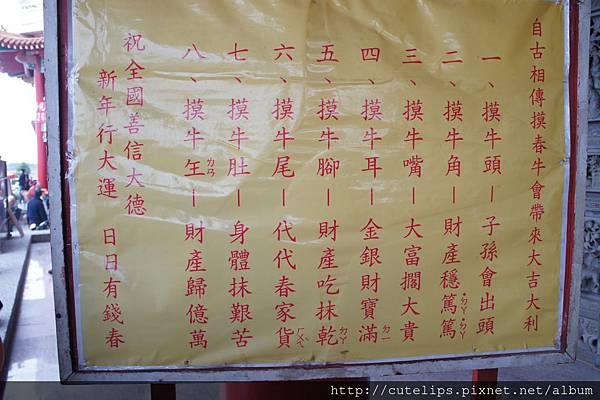 自古相傳摸春牛會帶來大吉大利
一、摸牛頭－子孫會出頭
二、摸牛角－財產穩篤篤
三、摸牛嘴－大富擱大貴
四、摸牛耳－金銀財寶滿
五、摸牛腳－財產吃抹乾
六、摸牛尾－代代春家貨
七、摸牛肚－身體抹艱苦
八、摸牛－財產歸億萬
祝全國善信大德
新年行大運 日日有錢春
http://cutelips.pixnet.net/album